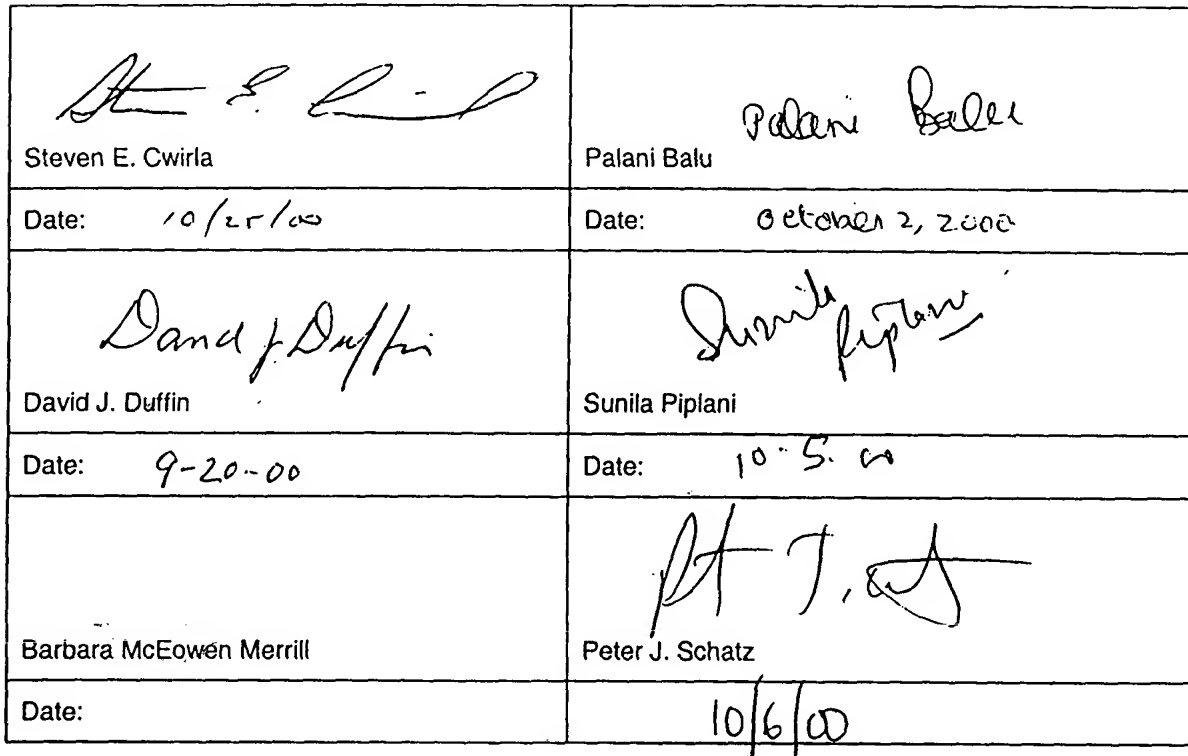 Steven E. Cwirla
Palani Balu
Palani Balu
Date: 10/25/00
Date: October 2, 2000
David J Duffin
Sunila Piplani
David J. Duffin
Sunila Piplani
Date: 9-20-00
Date: 10-5-00
Barbara McEowen Merrill
Peter J. Schatz
Date:
10/6/00